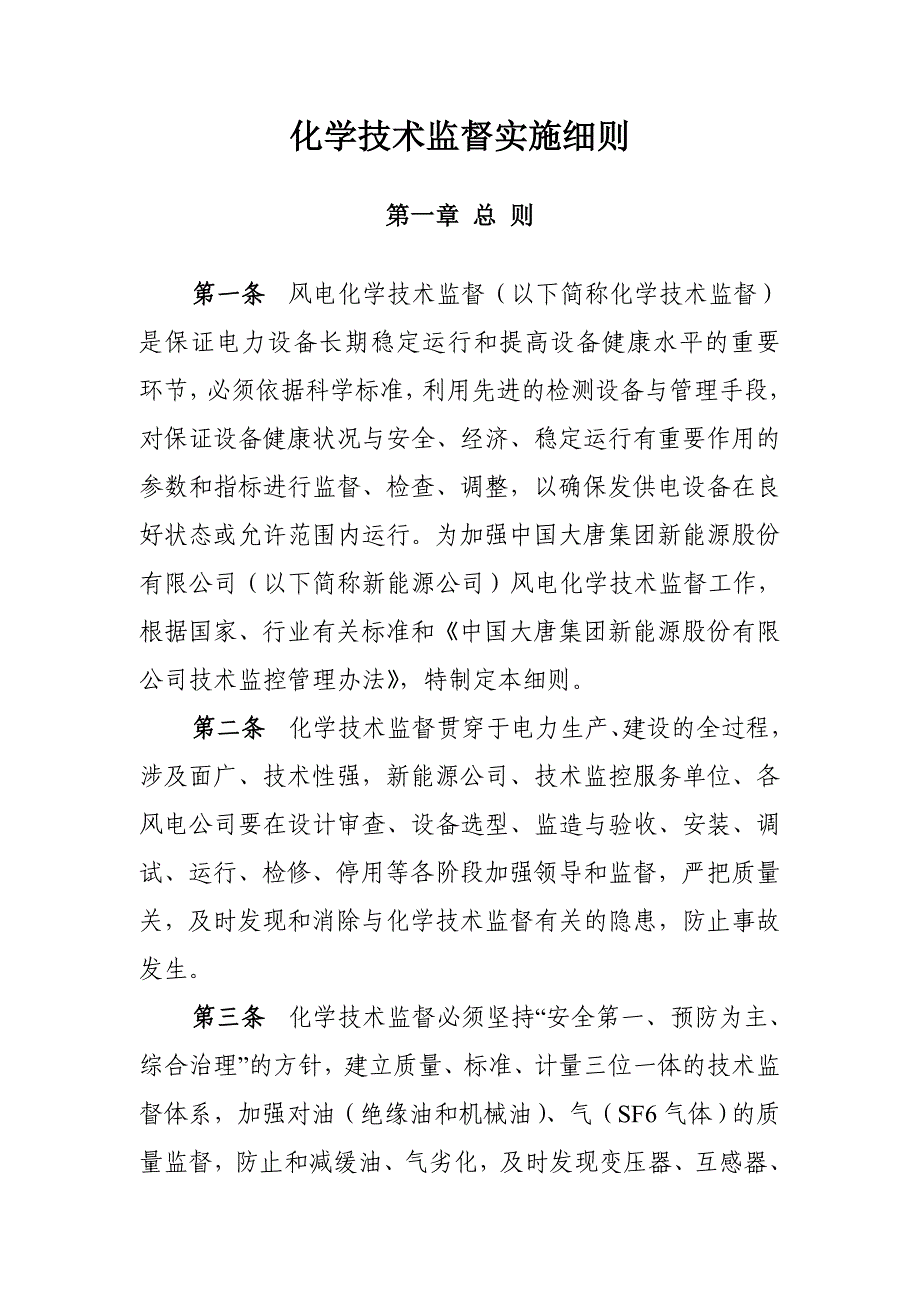 化学技术监督实施细则
第一章 总 则
第一条 风电化学技术监督（以下简称化学技术监督）
是保证电力设备长期稳定运行和提高设备健康水平的重要
环节,必须依据科学标准,利用先进的检测设备与管理手段，
对保证设备健康状况与安全、经济、稳定运行有重要作用的
参数和指标进行监督、检查、调整，以确保发供电设备在良
好状态或允许范围内运行。为加强中国大唐集团新能源股份
有限公司（以下简称新能源公司）风电化学技术监督工作，
根据国家、行业有关标准和《中国大唐集团新能源股份有限
公司技术监控管理办法》，特制定本细则。
第二条 化学技术监督贯穿于电力生产、建设的全过程，
涉及面广、技术性强，新能源公司、技术监控服务单位、各
风电公司要在设计审查、设备选型、监造与验收、安装、调
试、运行、检修、停用等各阶段加强领导和监督，严把质量
关，及时发现和消除与化学技术监督有关的隐患，防止事故
发生。
第三条 化学技术监督必须坚持“安全第一、预防为主、
综合治理”的方针，建立质量、标准、计量三位一体的技术监
督体系，加强对油（绝缘油和机械油）、气（SF6 气体）的质
量监督，防止和减缓油、气劣化，及时发现变压器、互感器、